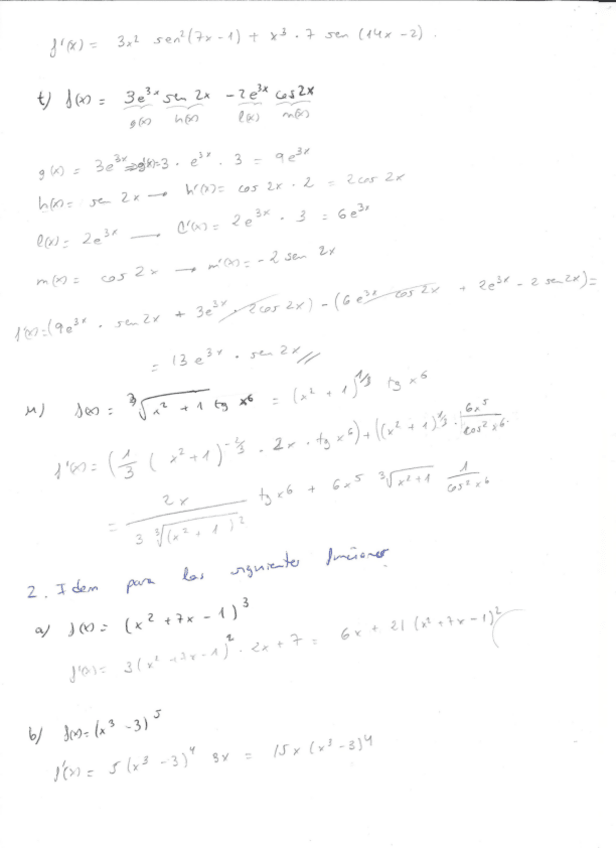 f'(x) = 3x² sen²(7x-1) + x³ · 7 sen (14x-2).
t) f(x) = 3e³ˣ sen 2x - 2e³ˣ cos 2x
g(x) h(x) l(x) m(x)
g(x) = 3e³ˣ ⇒ g'(x) = 3 · e³ˣ · 3 = 9e³ˣ
h(x) = sen 2x → h'(x) = cos 2x · 2 = 2 cos 2x
l(x) = 2e³ˣ → l'(x) = 2e³ˣ · 3 = 6e³ˣ
m(x) = cos 2x → m'(x) = -2 sen 2x
f'(x) = (9e³ˣ · sen 2x + 3e³ˣ · 2cos 2x) - (6e³ˣ cos 2x + 2e³ˣ - 2 sen 2x) =
= 13 e³ˣ · sen 2x //
u) f(x) = ∛(x² + 1) tg x⁶ = (x² + 1)^(1/3) tg x⁶
f'(x) = (1/3 (x² + 1)^(-2/3) · 2x · tg x⁶) + ((x² + 1)^(1/3) · 6x⁵/cos² x⁶
= 2x / (3 ∛(x² + 1)²) tg x⁶ + 6x⁵ ∛(x² + 1) 1/cos² x⁶
2. Idem para las siguientes funciones
a) f(x) = (x² + 7x - 1)³
f'(x) = 3(x² + 7x - 1)² · 2x + 7 = 6x + 21 (x² + 7x - 1)²
b) f(x) = (x³ - 3)⁵
f'(x) = 5(x³ - 3)⁴ 3x = 15x (x³ - 3)⁴